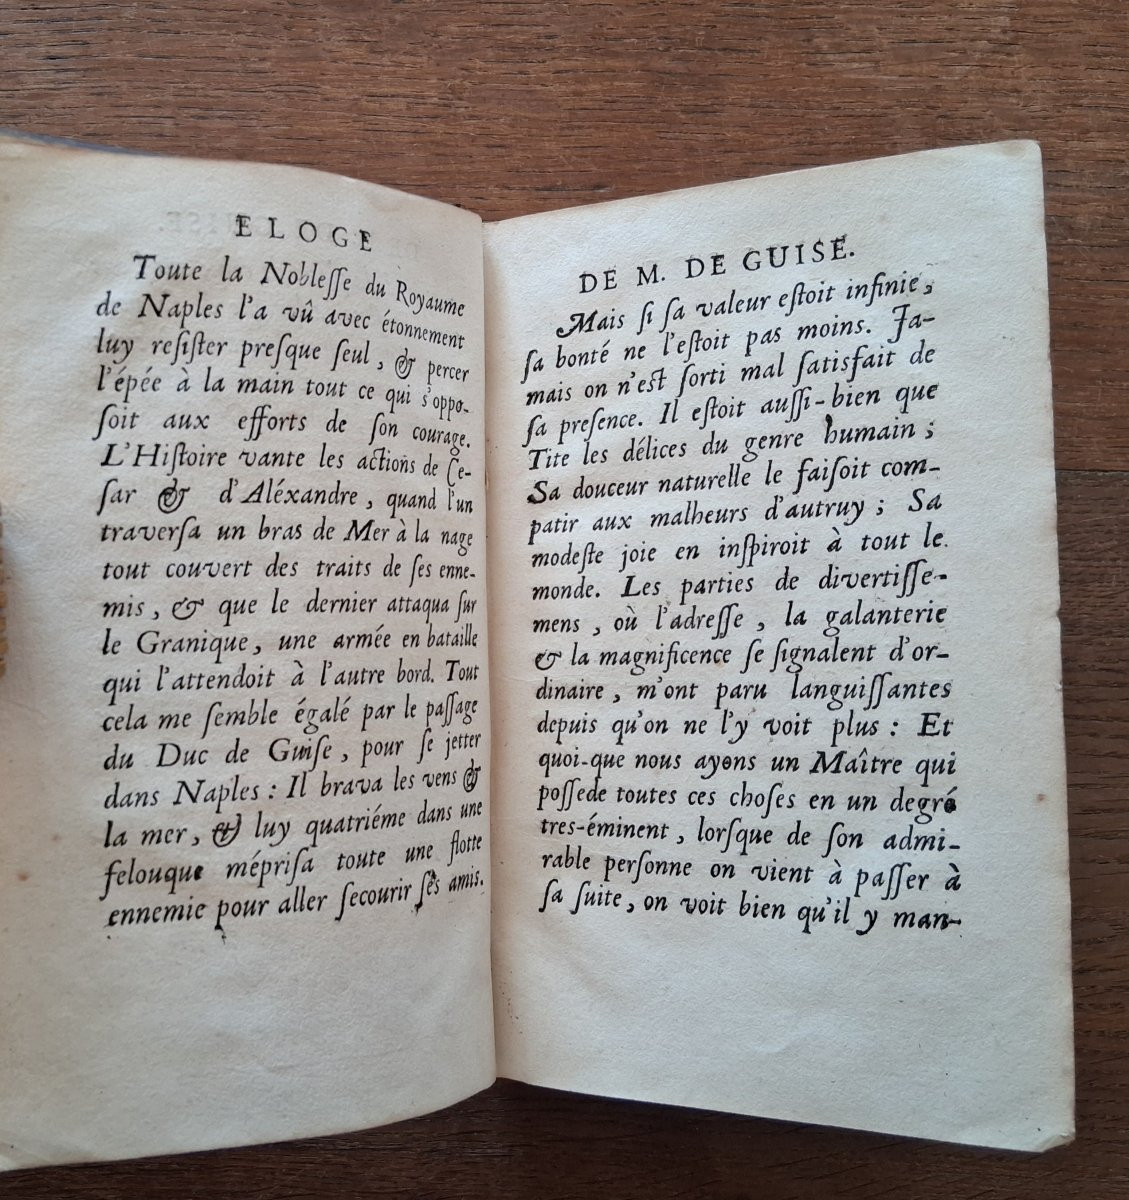 ELOGE
Toute la Nobleſſe du Royaume
de Naples l'a vû avec étonnement
luy reſiſter preſque ſeul, & percer
l'épée à la main tout ce qui s'oppo-
ſoit aux efforts de ſon courage.
L'Hiſtoire vante les actions de Ce-
ſar & d'Aléxandre, quand l'un
traverſa un bras de Mer à la nage
tout couvert des traits de ſes enne-
mis, & que le dernier attaqua ſur
le Granique, une armée en bataille
qui l'attendoit à l'autre bord. Tout
cela me ſemble égalé par le paſſage
du Duc de Guiſe, pour ſe jetter
dans Naples : Il brava les vens &
la mer, & luy quatriéme dans une
felouque mépriſa toute une flotte
ennemie pour aller ſecourir ſes amis.
DE M. DE GUISE.
Mais ſi ſa valeur eſtoit infinie,
ſa bonté ne l'eſtoit pas moins. Ja-
mais on n'est ſorti mal ſatisfait de
ſa preſence. Il eſtoit auſſi-bien que
Tite les délices du genre humain ;
Sa douceur naturelle le faiſoit com-
patir aux malheurs d'autruy ; Sa
modeſte joie en inſpiroit à tout le
monde. Les parties de divertiſſe-
mens, où l'adreſſe, la galanterie
& la magnificence ſe ſignalent d'or-
dinaire, m'ont paru languiſſantes
depuis qu'on ne l'y voit plus : Et
quoi-que nous ayons un Maître qui
poſſede toutes ces choſes en un degré
tres-éminent, lorſque de ſon admi-
rable perſonne on vient à paſſer à
ſa ſuite, on voit bien qu'il y man-